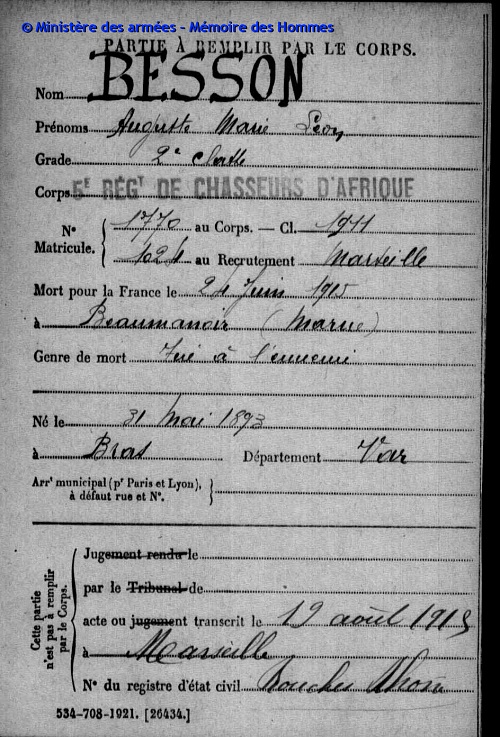 © Ministère des armées - Mémoire des Hommes
PARTIE À REMPLIR PAR LE CORPS.
Nom BESSON
Prénoms Auguste Marie Léon
Grade 2e classe
Corps 5E RÉGT DE CHASSEURS D'AFRIQUE
N° Matricule. { 1770 au Corps. — Cl. 1911
1024 au Recrutement Marseille
Mort pour la France le 24 Juin 1915
à Beaumanoir (Marne)
Genre de mort Tué à l'ennemi
Né le 31 Mai 1893
à Bras Département Var
Arrt municipal (pr Paris et Lyon), à défaut rue et N°. }
Cette partie n'est pas à remplir par le Corps. {
Jugement rendu le
par le Tribunal de
acte ou jugement transcrit le 19 août 1915
à Marseille
N° du registre d'état civil Bouches Rhône
534-708-1921. [26434.]